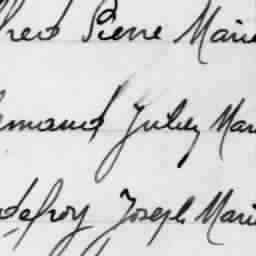 fred Pierre Marie
rmand Juley Mar
odefroy Joseph Marie